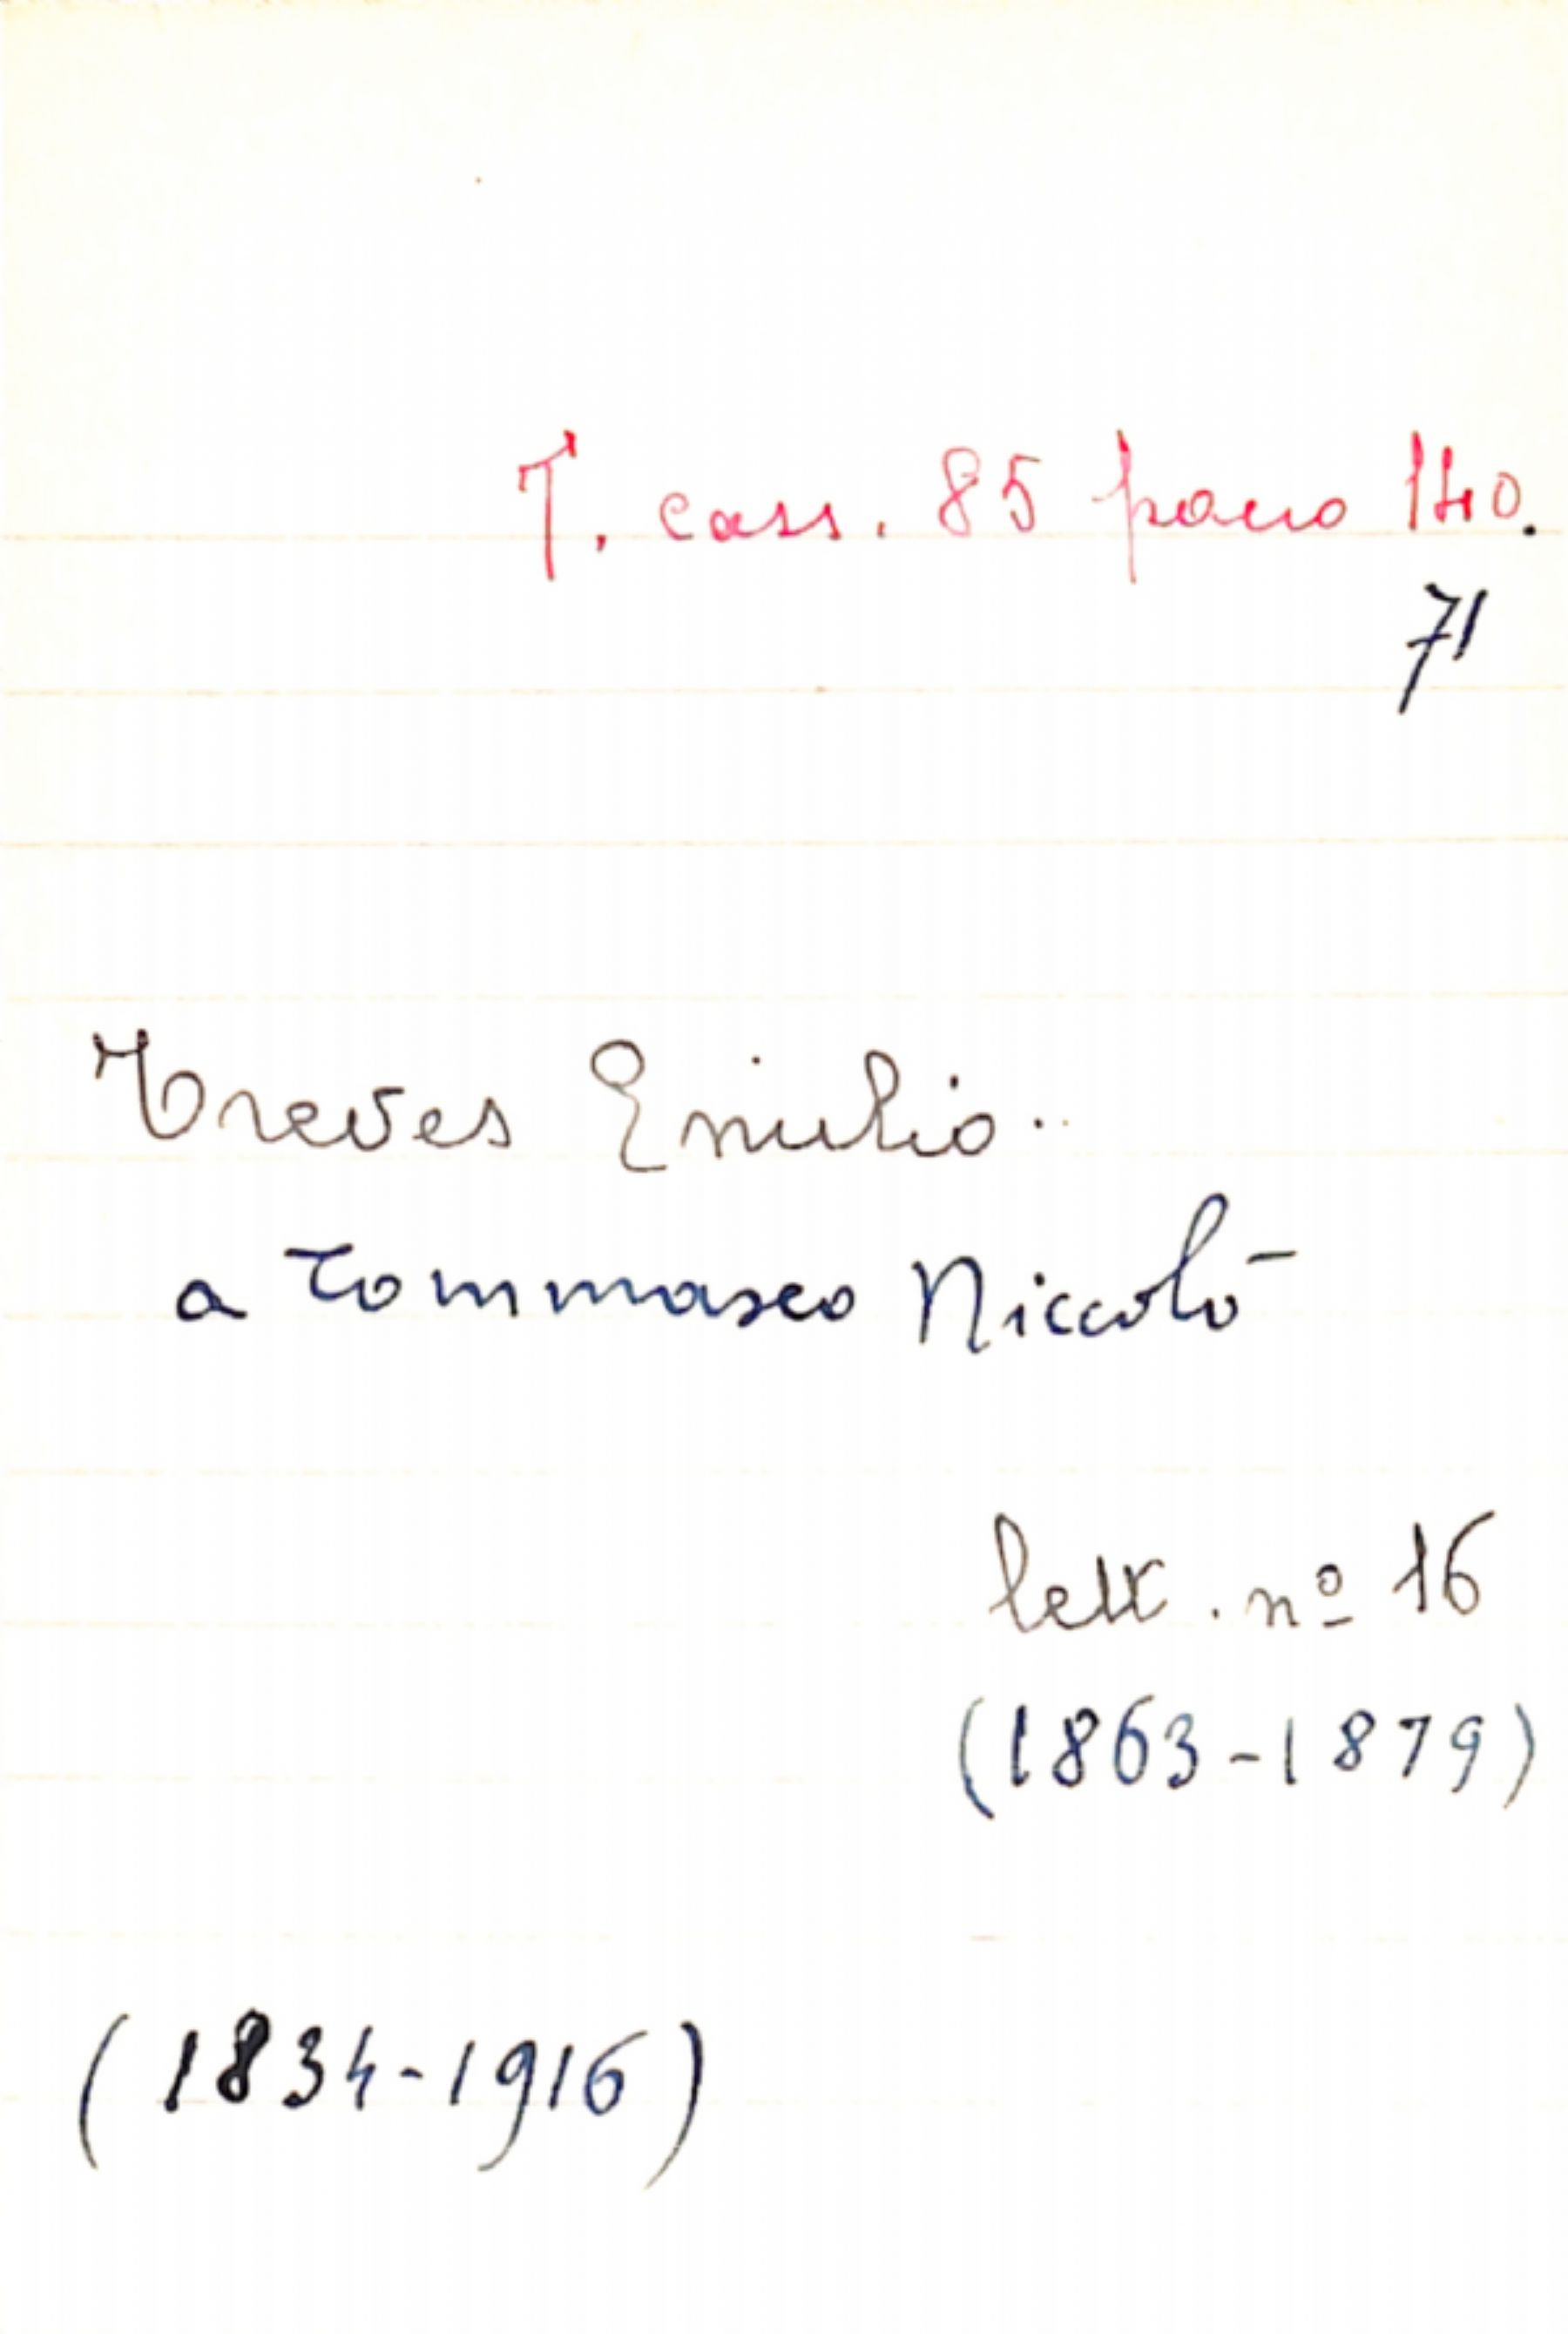 T. cass. 85 pacco 140.
71
Treves Emilio..
a Tommaseo Niccolò
lett. nº 16
(1863-1879)
(1834-1916)